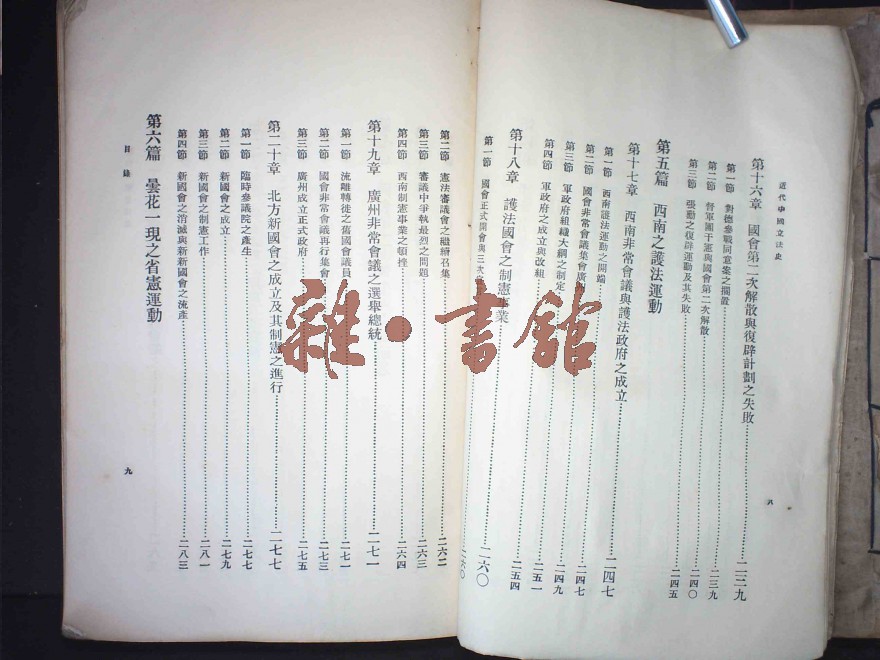 近代中國立法史
第十六章 國會第二次解散與復辟計劃之失敗……二三九
第一節 對德參戰同意案之擱置……二三九
第二節 督軍團干憲與國會第二次解散……二四〇
第三節 張勳之復辟運動及其失敗……二四五
第五篇 西南之護法運動
第十七章 西南非常會議與護法政府之成立……二四七
第一節 西南護法運動之開端……二四七
第二節 國會非常會議集會廣……二四九
第三節 軍政府組織大綱之制定……二五一
第四節 軍政府之成立與改組……二五四
第十八章 護法國會之制憲事業……二六〇
第一節 國會正式開會與三次……二六〇
八
第二節 憲法審議會之繼續召集……二六二
第三節 審議中爭執最烈之問題……二六三
第四節 西南制憲事業之頓挫……二六四
第十九章 廣州非常會議之選舉總統……二七一
第一節 流離轉徙之舊國會議員……二七一
第二節 國會非常會議再行集會……二七三
第三節 廣州成立正式政府……二七五
第二十章 北方新國會之成立及其制憲之進行……二七七
第一節 臨時參議院之產生……二七七
第二節 新國會之成立……二七九
第三節 新國會之制憲工作……二八一
第四節 新國會之消滅與新新國會之流產……二八三
第六篇 曇花一現之省憲運動
目錄
九
雜·書館